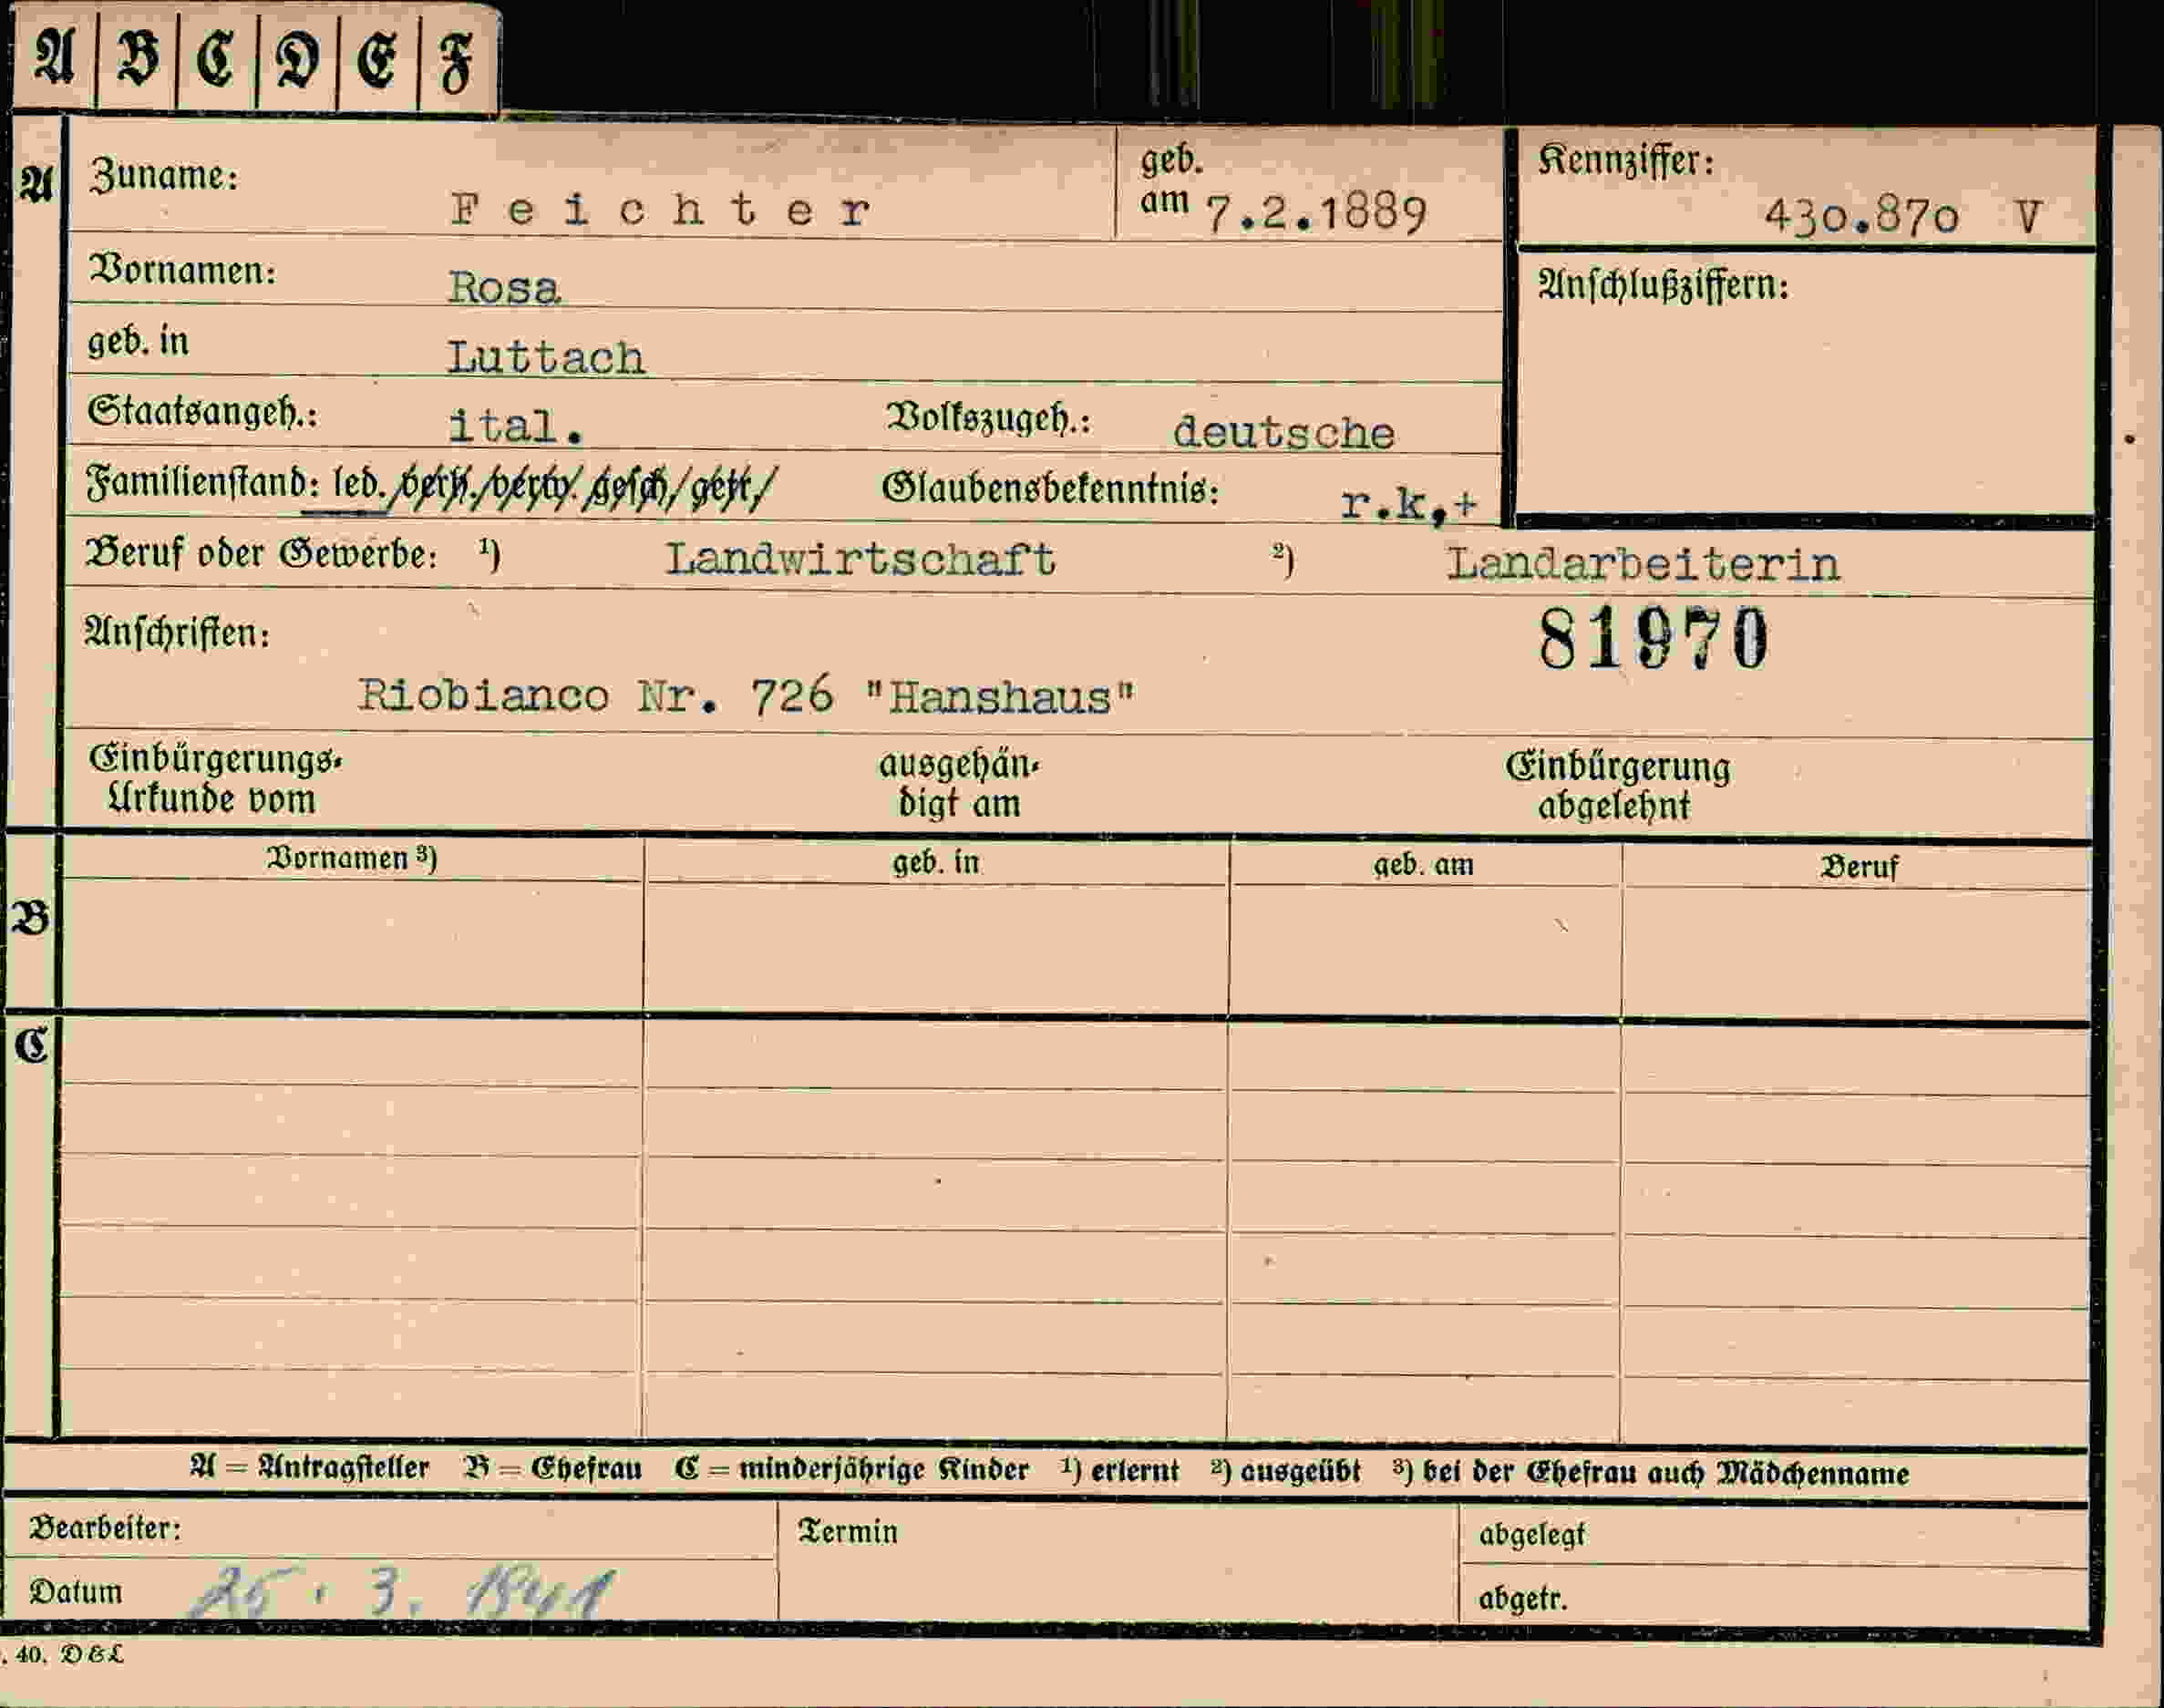 A B C D E F
A Zuname: Feichter geb. am 7.2.1889 Kennziffer: 430.870 V
Vornamen: Rosa Anschlußziffern:
geb. in Luttach
Staatsangeh.: ital. Volkszugeh.: deutsche
Familienstand: led./verh./verw./gesch/getr/ Glaubensbekenntnis: r.k,+
Beruf oder Gewerbe: ¹) Landwirtschaft ²) Landarbeiterin
Anschriften: 81970
Riobianco Nr. 726 "Hanshaus"
Einbürgerungs- ausgehän- Einbürgerung
Urkunde vom digt am abgelehnt
Vornamen ³) geb. in geb. am Beruf
B
C
A = Antragsteller B = Ehefrau C = minderjährige Kinder ¹) erlernt ²) ausgeübt ³) bei der Ehefrau auch Mädchenname
Bearbeiter: Termin abgelegt
Datum 25. 3. 1941 abgetr.
. 40. D & L